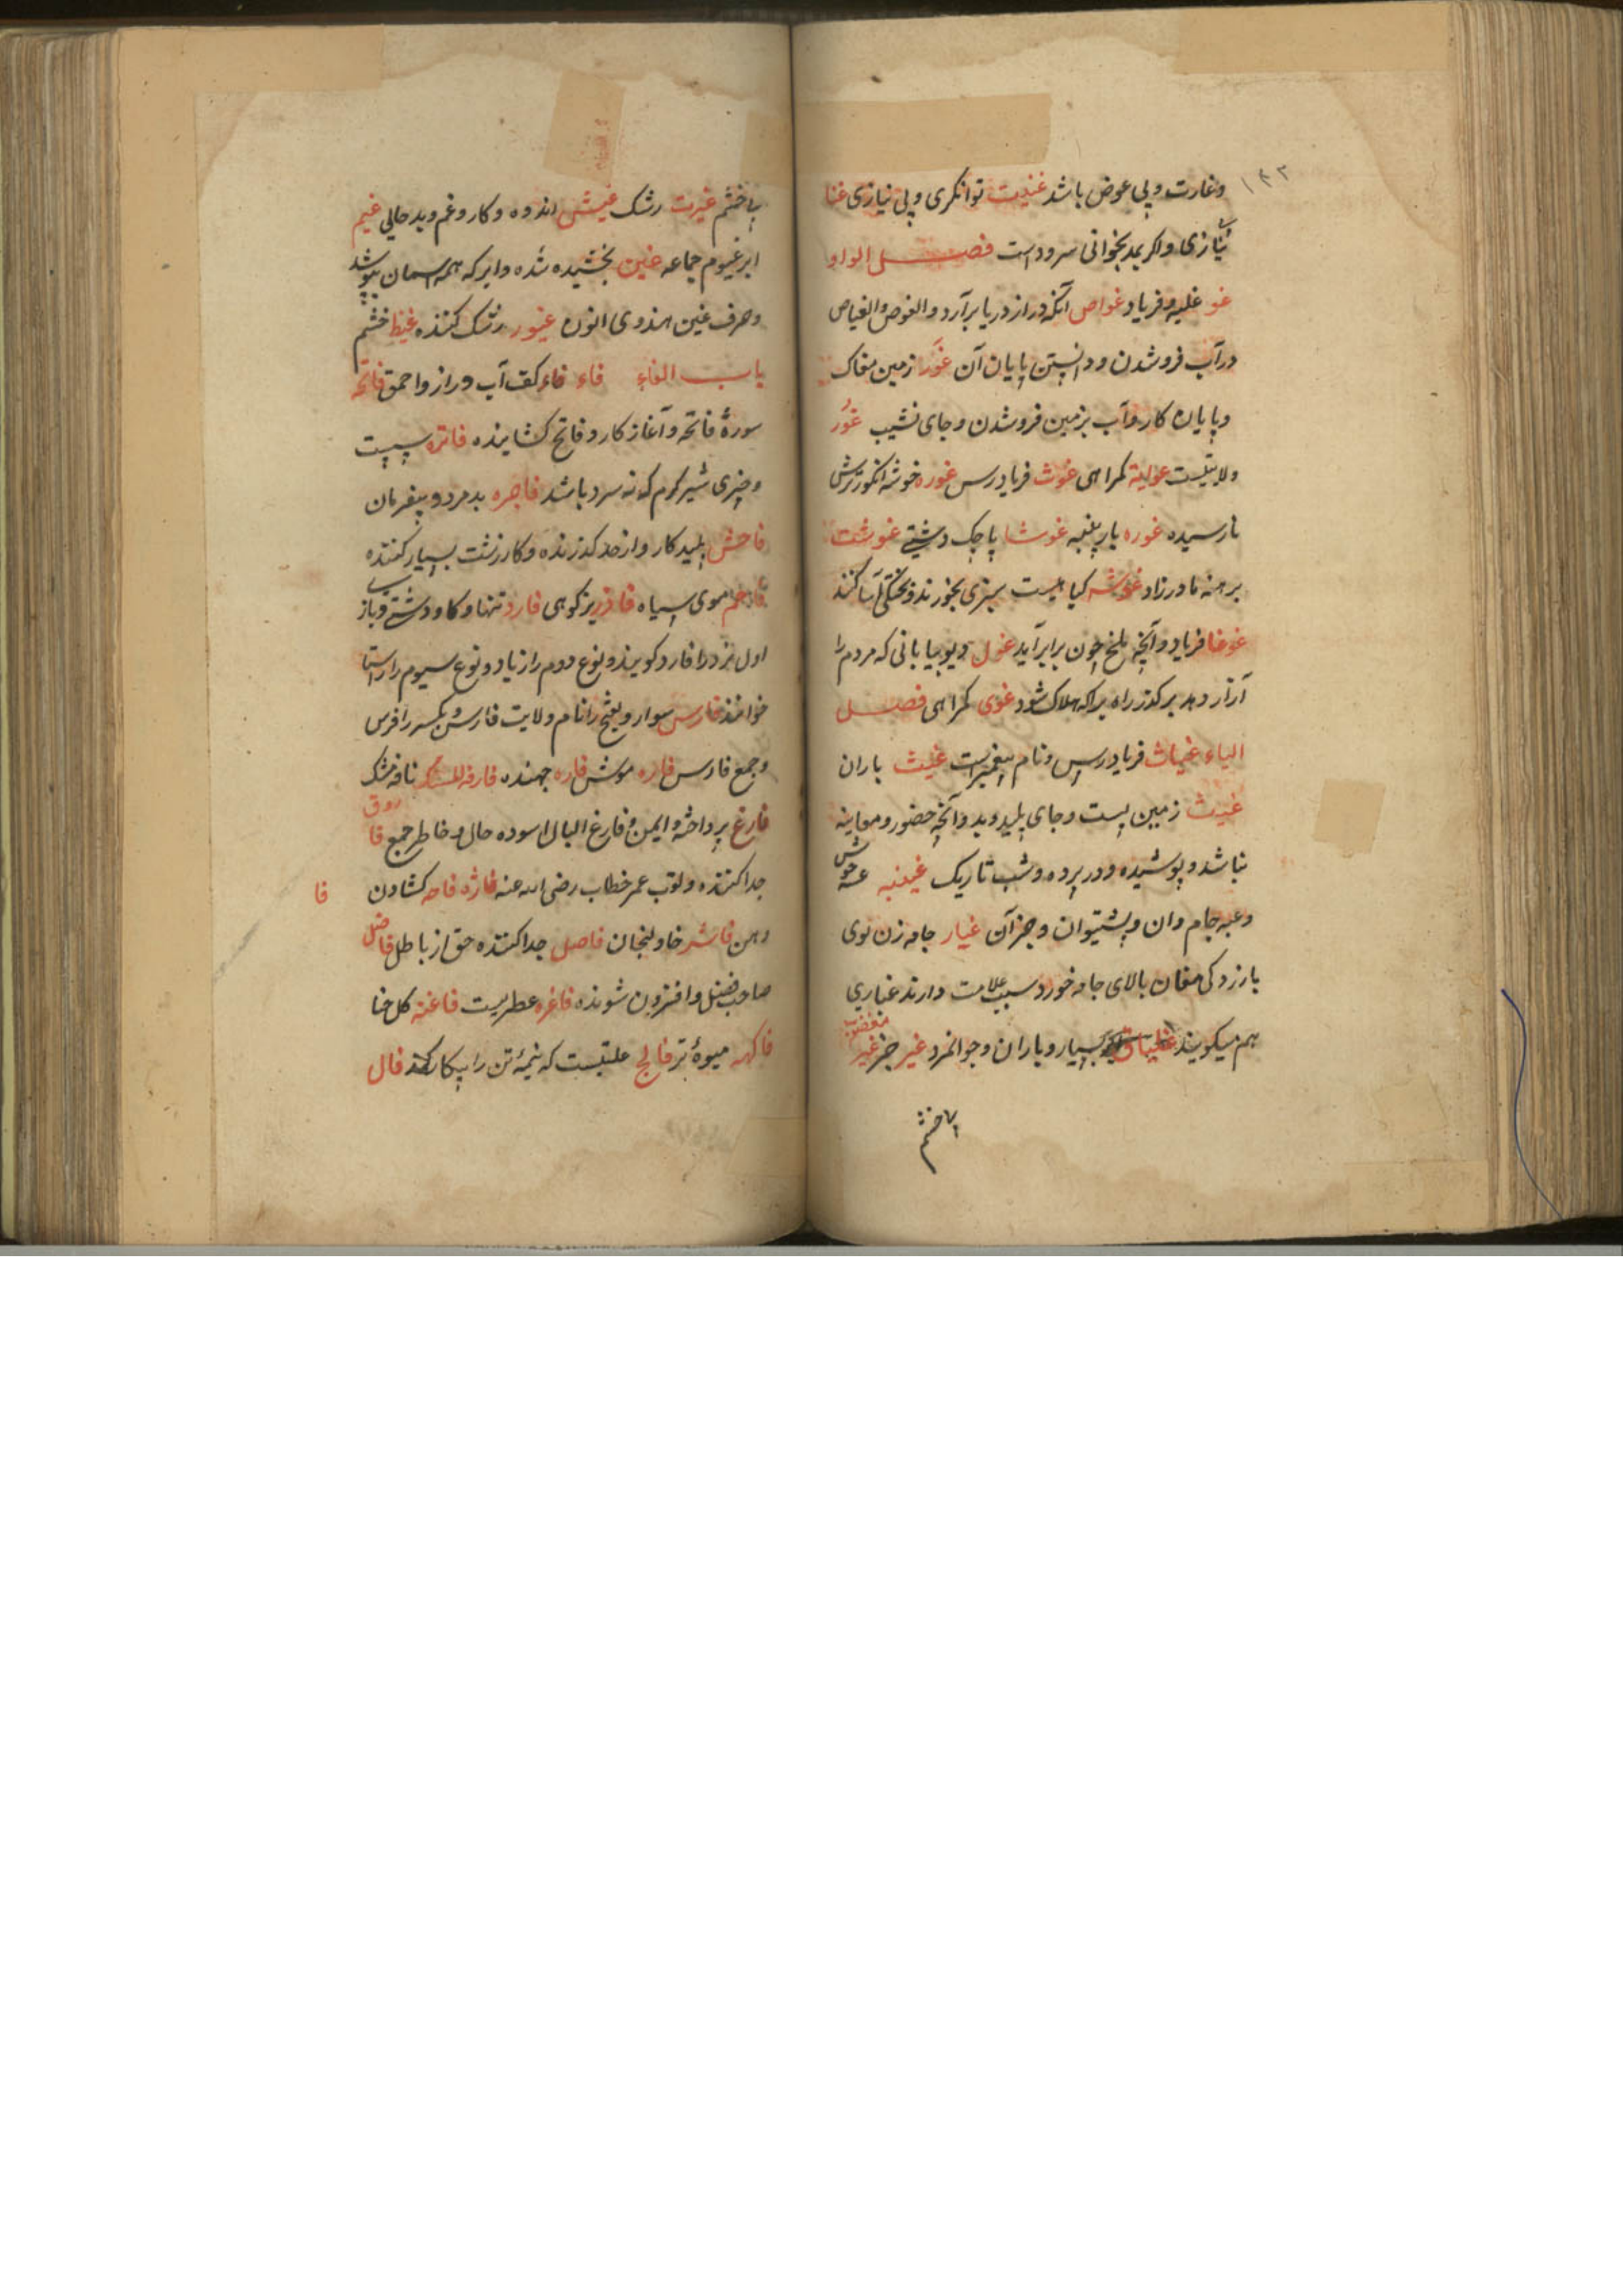 ۱۴۳
وغارت و پی عوض باشد غنیت توانکری و پی نیازی غنا
نیازی واکر بمد بخوانی سرود است فصل الواو
غو غلبه و فریاد غواص آنکه در از دریا برآرد والغوص والغیاص
در آب فروشدن و دانستن پایان آن غور زمین مغاک
و پایان کار و آب بزمین فروشدن و جای نشیب غور
ولایتیست غوایة کمراهی غوث فریادرس غوره خوشه انکور ترش
نارسیده غوزه بار پنبه غوشا پاچک دشتی غوشت
برهنه مادرزاد غوشه کیاهیست بسبزی بخورند و بخشکی
غوغا فریاد و آنچه ملخ چون برابر آید غول دیو بیابانی که مردم را
آزار دهد بر کذر راه براکه هلاک شود غوی کمراهی فصل
الیاء غیاث فریادرس و نام پیغمبریست غیث باران
غیب زمین پست و جای پلید و بد و آنچه حضور و معاینه
نباشد و پوشیده و در پرده و شب تاریک غیبه
وعبه جام وان و پشتیوان و جز آن غیار جامه زن نوی
بارزد کی مغان بالای جامه خورد سبب علامت دارند غیاری
هم میکویند غیداق بسیار و باران و جوانمرد غیر جز غیر مغضوب
پی خشم
پی خشم غیرت رشک غیش اندوه و کار و غم و بد حالی غیم
ابر غیوم جماعه غین بخشیده شده و ابر که همه اسمان بپوشد
وحرف غین هندوی انون غیور رشک کننده غیظ خشم
باب الفاء فاء فاء کف آب دراز و احمق فاتحه
سورهٔ فاتحه و آغاز کار و فاتح کشاینده فاتره سست
وچیزی شیر کرم که نه سرد باشد فاجره بد مرد و بیفرمان
فاحش پلید کار و از حد کذرنده و کار زشت بسیار کننده
فاحم موی سیاه فادر بز کوهی فارد تنها و کاو دشتی و باز
اول نرد را فارد کویند و نوع دوم را زیاد و نوع سیوم را
خوانند فارس سوار و بفتح را نام ولایت فارس و بکسر را فرس
وجمع فارس فاره موش فاره جهنده فارة المسک نافه مشک
فارغ پرداخته و ایمن و فارغ البال اسوده حال و خاطر جمع فاروق
جدا کننده و لقب عمر خطاب رضی الله عنه فاژه فاجه کشادن فا
دهن فاشر خاولنجان فاصل جدا کننده حق از باطل فاضل
صاحب فضل و افزون شونده فاغره عطریست فاغنه کل حنا
فاکهه میوهٔ تر فالج علتیست که نیمهٔ تن را بیکار کند فال